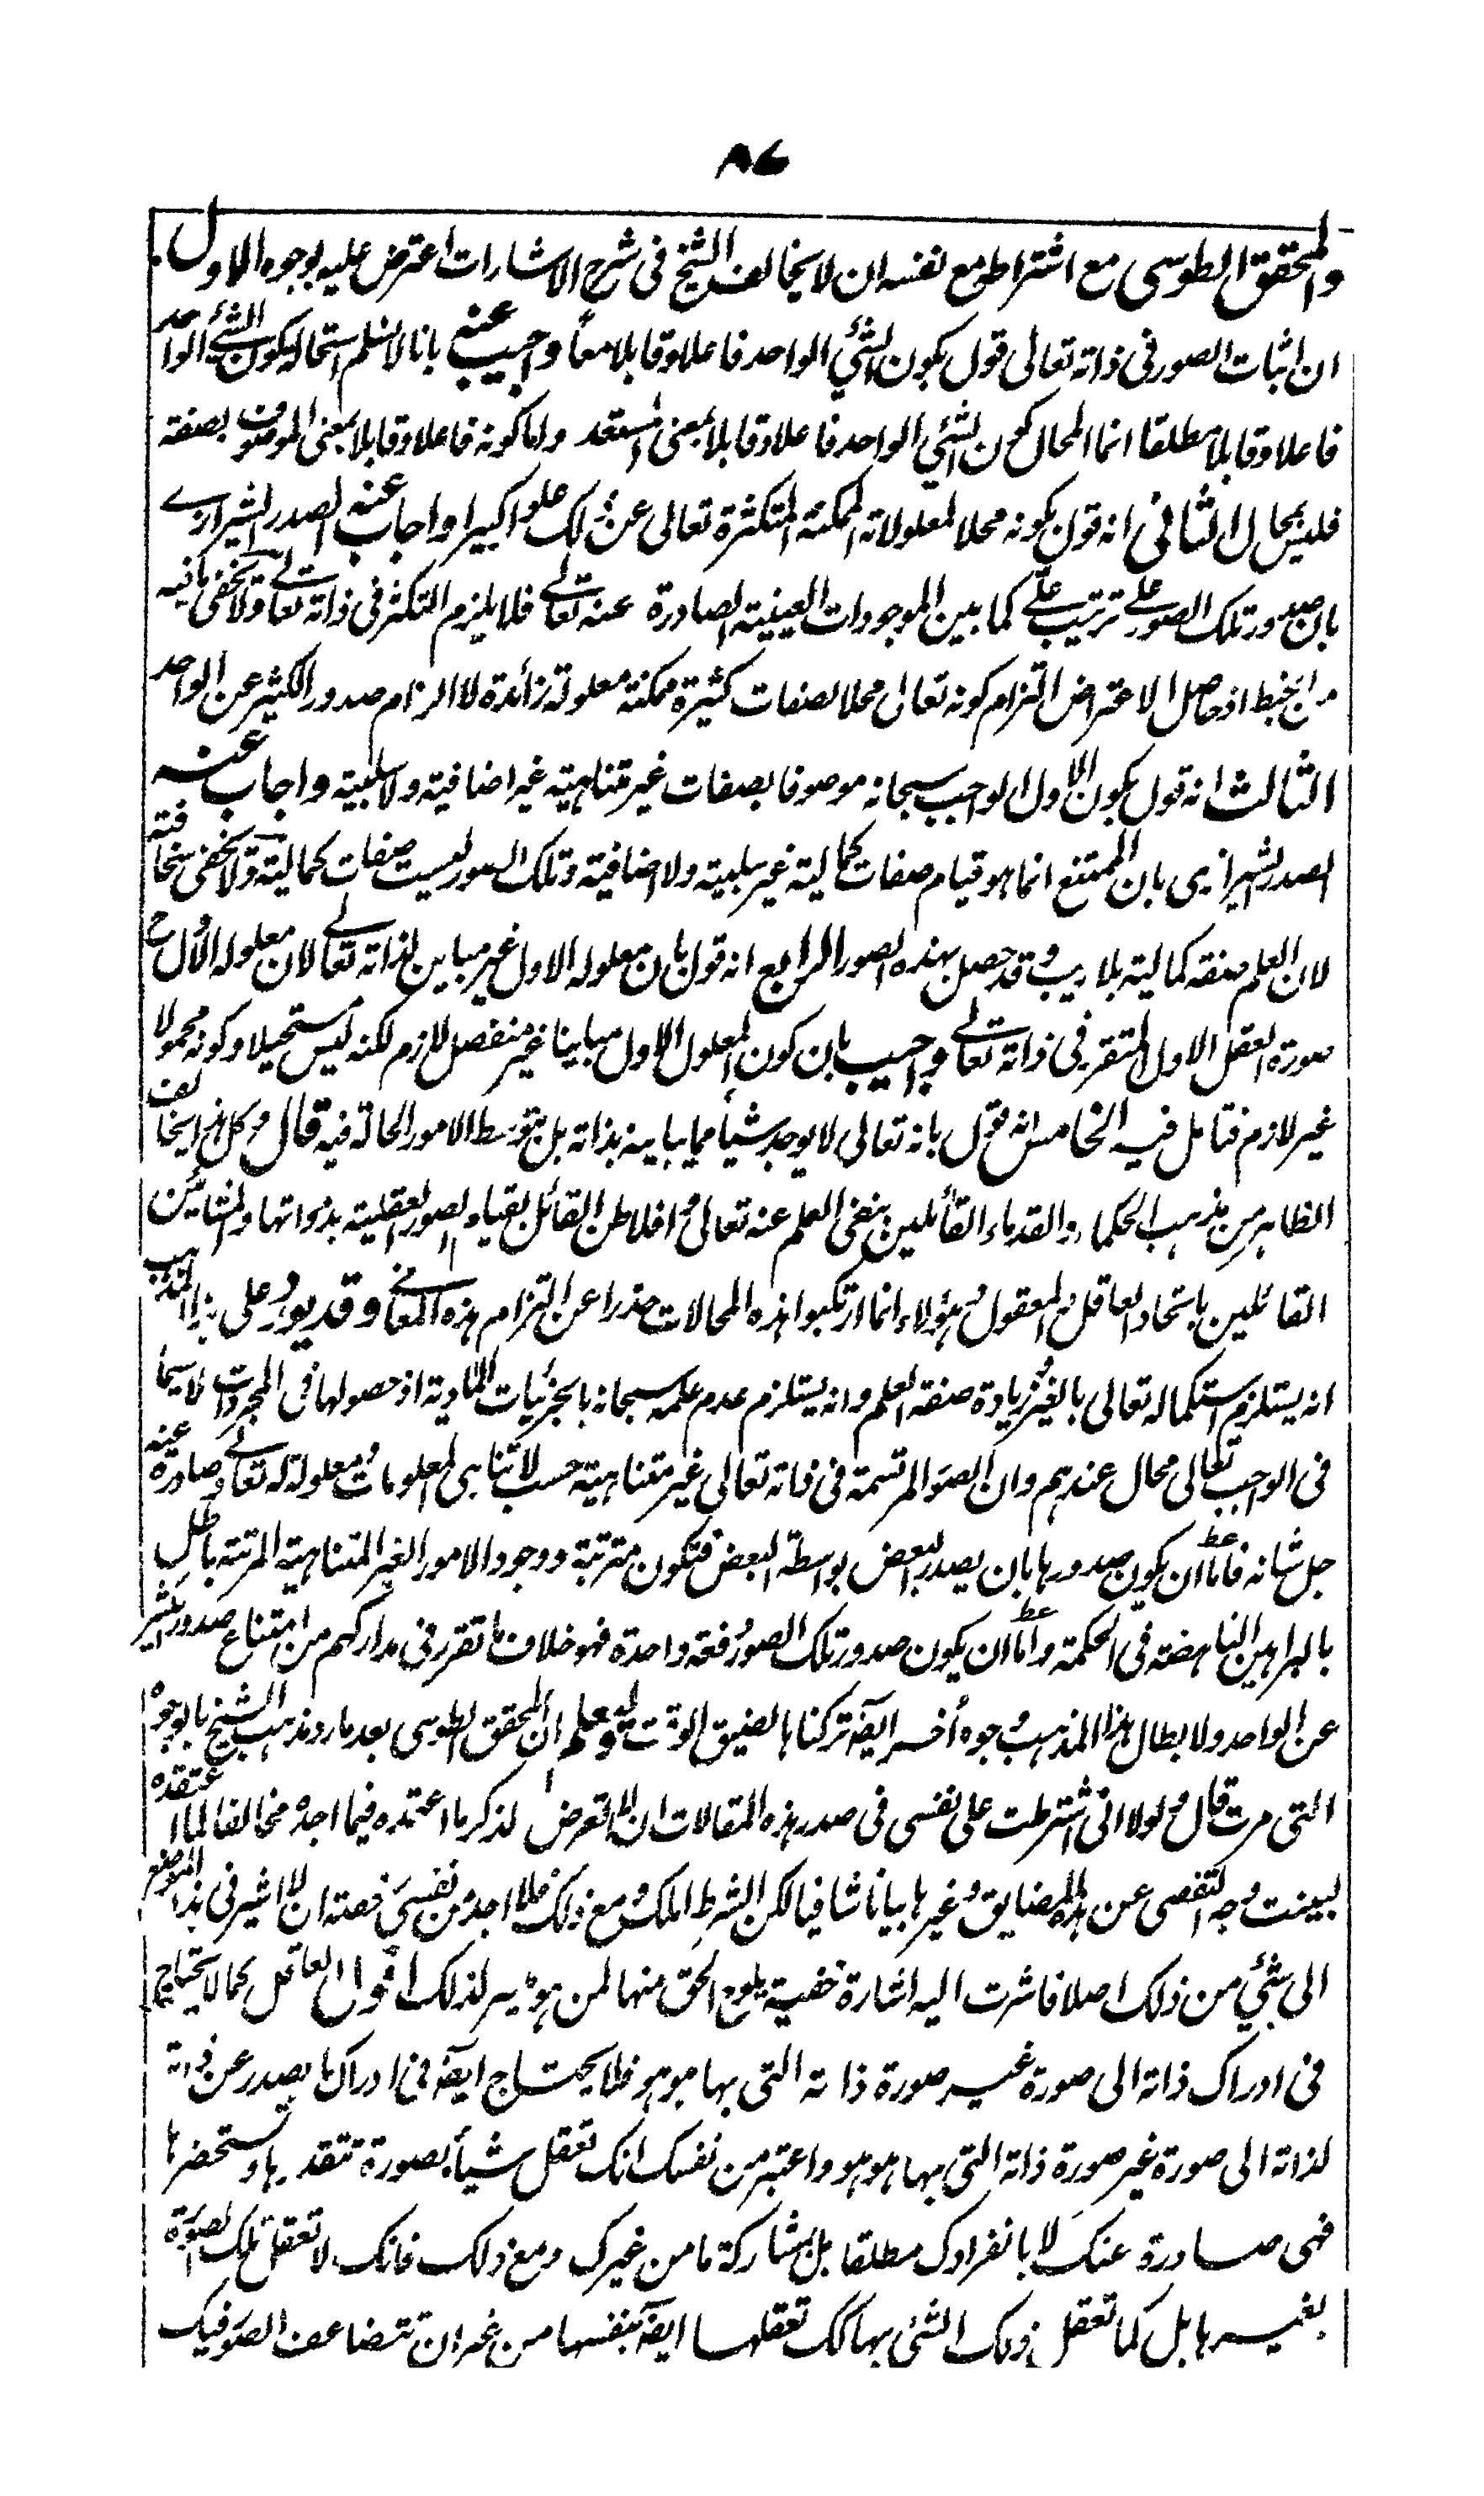 ٨٦
والمحقق الطوسي مع اشتراطه مع نفسه ان لا يخالف الشيخ في شرح الاشارات اعترض عليه بوجوه الاول
ان اثبات الصور في ذاته تعالى قول بكون الشيء الواحد فاعلا وقابلا معا واجيب عنه بانا لا نسلم استحالة كون الشيء الواحد
فاعلا وقابلا مطلقا انما المحال كون الشيء الواحد فاعلا وقابلا بمعنى المستعد واما كونه فاعلا وقابلا بمعنى الموصوف بصفة
فليس بمحال الثاني انه قول بكونه محلا لمعلولاته الممكنة المتكثرة تعالى عن ذلك علوا كبيرا واجاب عنه الصدر الشيرازي
بان صدور تلك الصور على ترتيب على كما بين الموجودات العينية الصادرة عنه تعالى فلا يلزم التكثر في ذاته تعالى ولا يخفى ما فيه
من الخبط اذ حاصل الاعتراض التزام كونه تعالى محلا لصفات كثيرة ممكنة معلولة زائدة لا الزام صدور الكثير عن الواحد
الثالث انه قول بكون الاول الواجب سبحانه موصوفا بصفات غير متناهية غير اضافية ولا سلبية واجاب عنه
الصدر الشيرازي بان الممتنع انما هو قيام صفات كمالية غير سلبية ولا اضافية وتلك الصور ليست صفات كمالية ولا يخفى سخافته
لان العلم صفة كمالية بلا ريب وقد حصل بهذه الصور الرابع انه قول بان معلوله الاول غير مباين لذاته تعالى لان معلوله الاول ح
صورة العقل الاول المتقرر في ذاته تعالى واجيب بان كون المعلول الاول مباينا غير منفصل لازم لكنه ليس مستحيلا وكونه محمولا
غير لازم فتامل فيه الخامس انه قول بانه تعالى لا يوجد شيأ مما يباينه بذاته بل بتوسط الامور الحالة فيه قال وكل هذا يخالف
الظاهر من مذهب الحكماء والقدماء القائلين بنفي العلم عنه تعالى وافلاطن القائل بقيام الصور العقلية بذواتها والمشائين
القائلين باتحاد العاقل والمعقول وهؤلاء انما ارتكبوا هذه المحالات حذرا عن التزام هذه المعاني وقد يورد على هذا المذهب
انه يستلزم استكماله تعالى بالغير وزيادة صفة العلم وانه يستلزم عدم علمه سبحانه بالجزئيات المادية اذ حصولها في المجردات لا سيما
في الواجب تعالى محال عندهم وان الصور المرتسمة في ذاته تعالى غير متناهية حسب لا تناهي المعلومات ومعلولة له تعالى وصادرة عنه
جل شانه فاما ان يكون صدورها بان يصدر البعض بواسطة البعض فتكون مترتبة ووجود الامور الغير المتناهية المرتبة باطل
بالبراهين الناهضة في الحكمة واما ان يكون صدور تلك الصور دفعة واحدة فهو خلاف ما تقرر في مداركهم من امتناع صدور الكثير
عن الواحد ولابطال هذا المذهب وجوه أخر ايضا تركناها لضيق الوقت وليعلم ان المحقق الطوسي بعد ما رد مذهب الشيخ بالوجوه
التي مرت قال ولولا اني اشترطت على نفسي في صدر هذه المقالات ان لا اتعرض لذكر ما اعتمده فيما اجده مخالفا لما اعتقده
لبينت وجه التفصي عن هذه المضايق وغيرها بيانا شافيا لكن الشرط املك ومع ذلك فلا اجد من نفسي رخصة ان لا اشير في هذا الموضع
الى شيء من ذلك اصلا فاشرت اليه اشارة خفية يلوح الحق منها لمن هو ميسر لذلك اقول العاقل كما لا يحتاج
في ادراك ذاته الى صورة غير صورة ذاته التي بها هو هو فلا يحتاج ايضا في ادراك ما يصدر عن ذاته
لذاته الى صورة غير صورة ذاته التي بها هو هو واعتبر من نفسك انك تعقل شيأ بصورة تتقدرها وتستحضرها
فهي صادرة عنك لا بانفرادك مطلقا بل بمشاركة ما من غيرك ومع ذلك فانك لا تعقل تلك الصورة
بغيرها بل كما تعقل ذلك الشيء بها كك تعقلها ايضا بنفسها من غير ان تتضاعف الصور فيك